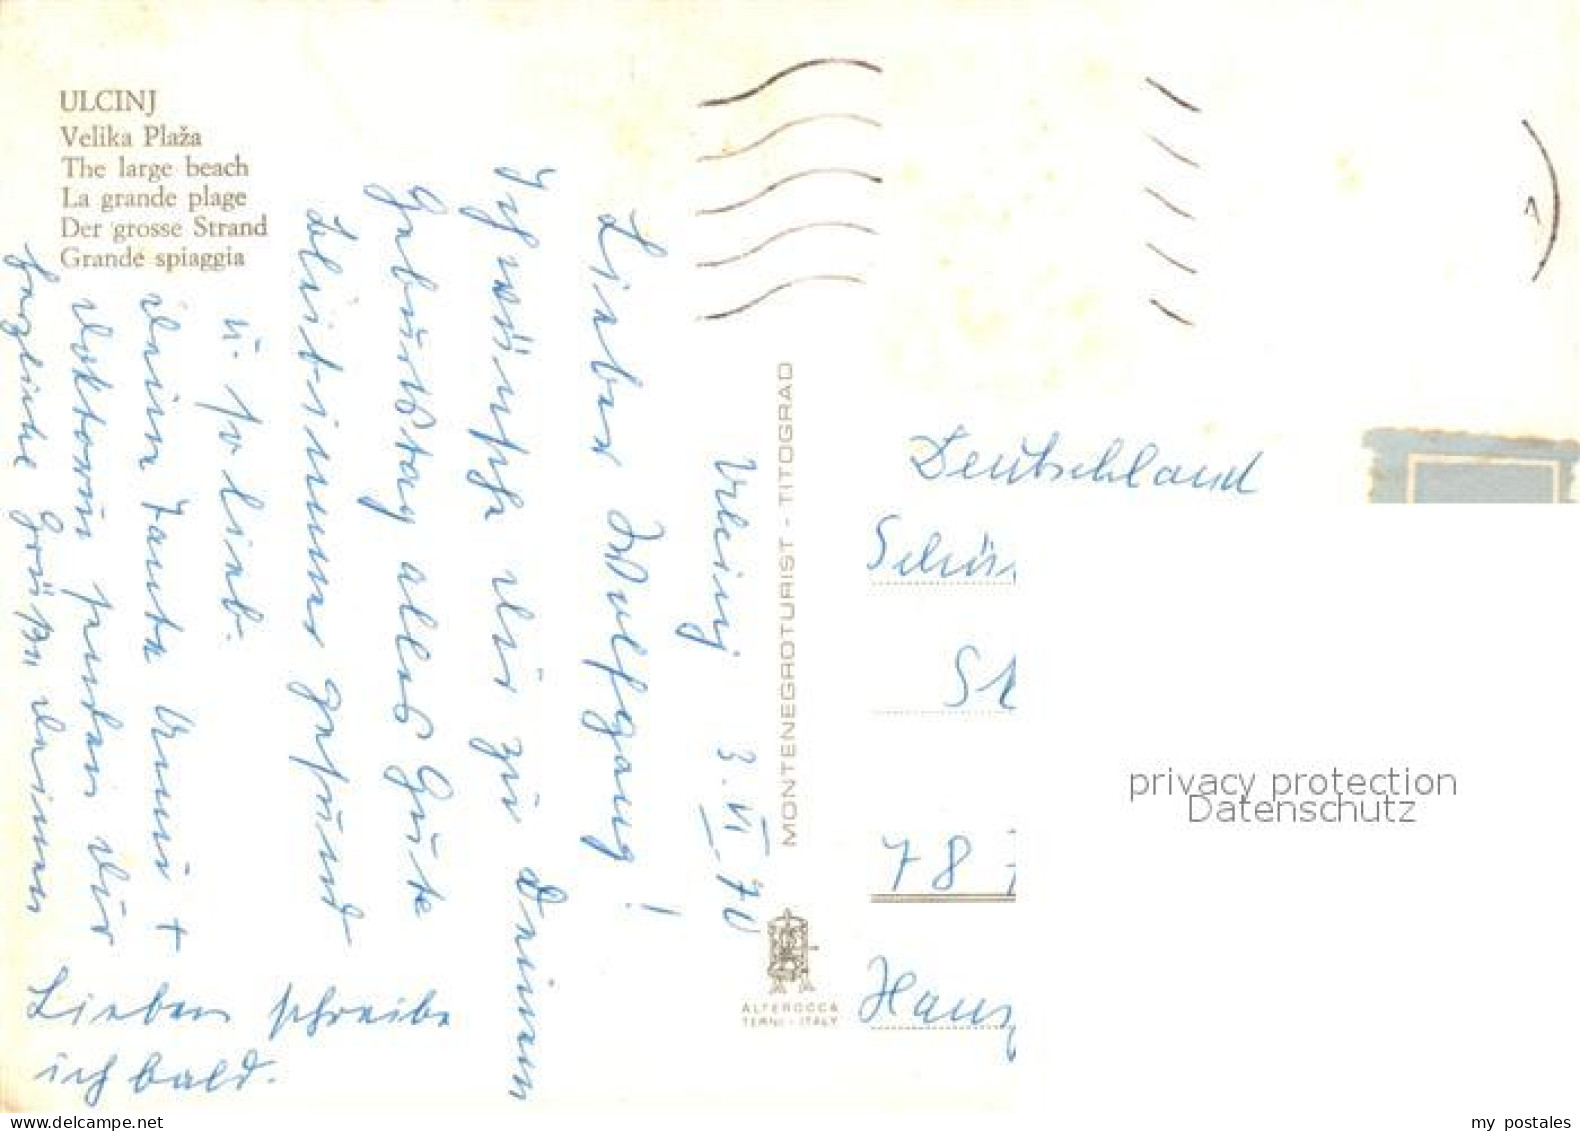 ULCINJ
Velika Plaža
The large beach
La grande plage
Der grosse Strand
Grande spiaggia
Ulcinj 3. VI. 70
Lieber Wolfgang!
Ich wünsche dir zu Deinem
Geburtstag alles Gute
bleib immer gesund
u. so lieb.
deine Tante +
dir
herzliche Grüße deinen
Lieben schreibe
ich bald.
MONTENEGROTURIST - TITOGRAD
ALTEROCCA
TERNI - ITALY
Deutschland
78
privacy protection
Datenschutz
delcampe.net
my_postales